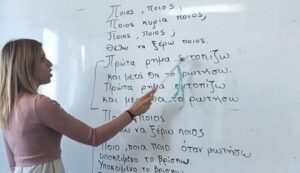 Ποιος, ποιος;
Ποιος κυρία ποιος,
Ποιος, ποιος;
Θέλω να ξέρω ποιος.
Πρώτα ρήμα εντοπίζω
και μετά θα το ρωτήσω.
Πρώτα ρήμα εντοπίζω
και μετά θα το ρωτήσω
Ποιος ποιος
Θέλω να ξέρω ποιος
Ποιο, ποια ποιο όταν ρωτήσω
υποκείμενο το βρίσκω
Υποκείμενο το βρίσκω